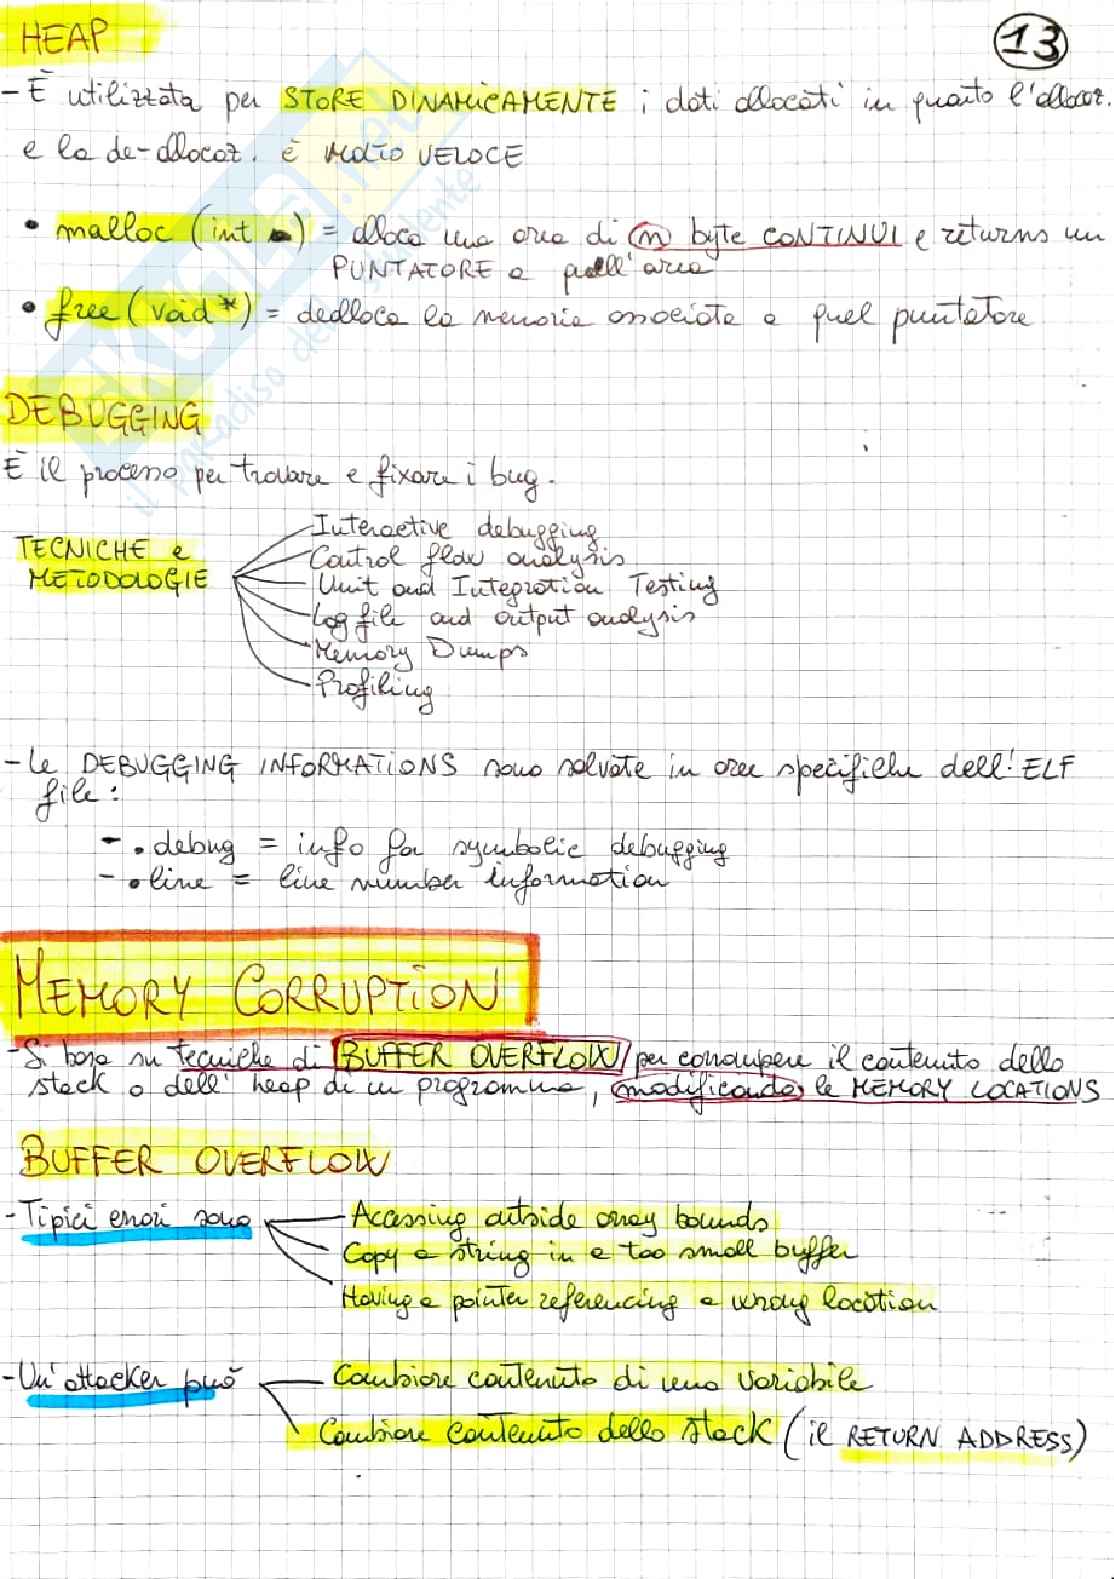 HEAP
13
- È utilizzata per STORE DINAMICAMENTE i dati allocati in quanto l'allocaz.
e la de-allocaz. è MOLTO VELOCE
• malloc (int ) = alloca una area di n byte CONTINUI e returns un
PUNTATORE a quell'area
• free (void*) = dealloca la memoria associata a quel puntatore
DEBUGGING
È il processo per trovare e fixare i bug.
TECNICHE e
METODOLOGIE
Interactive debugging
Control flow analysis
Unit and Integration Testing
Log file and output analysis
Memory Dumps
Profiling
- Le DEBUGGING INFORMATIONS sono salvate in aree specifiche dell'ELF
file:
- .debug = info for symbolic debugging
- .line = line number information
MEMORY CORRUPTION
- Si basa su tecniche di BUFFER OVERFLOW per corrompere il contenuto dello
stack o dell'heap di un programma, modificando le MEMORY LOCATIONS
BUFFER OVERFLOW
- Tipici errori sono
Acessing outside array bounds
Copy a string in a too small buffer
Having a pointer referencing a wrong location
- Un'attacker può
Cambiare contenuto di una variabile
Cambiare contenuto dello stack (il RETURN ADDRESS)
skuola.net
il paradiso dello studente